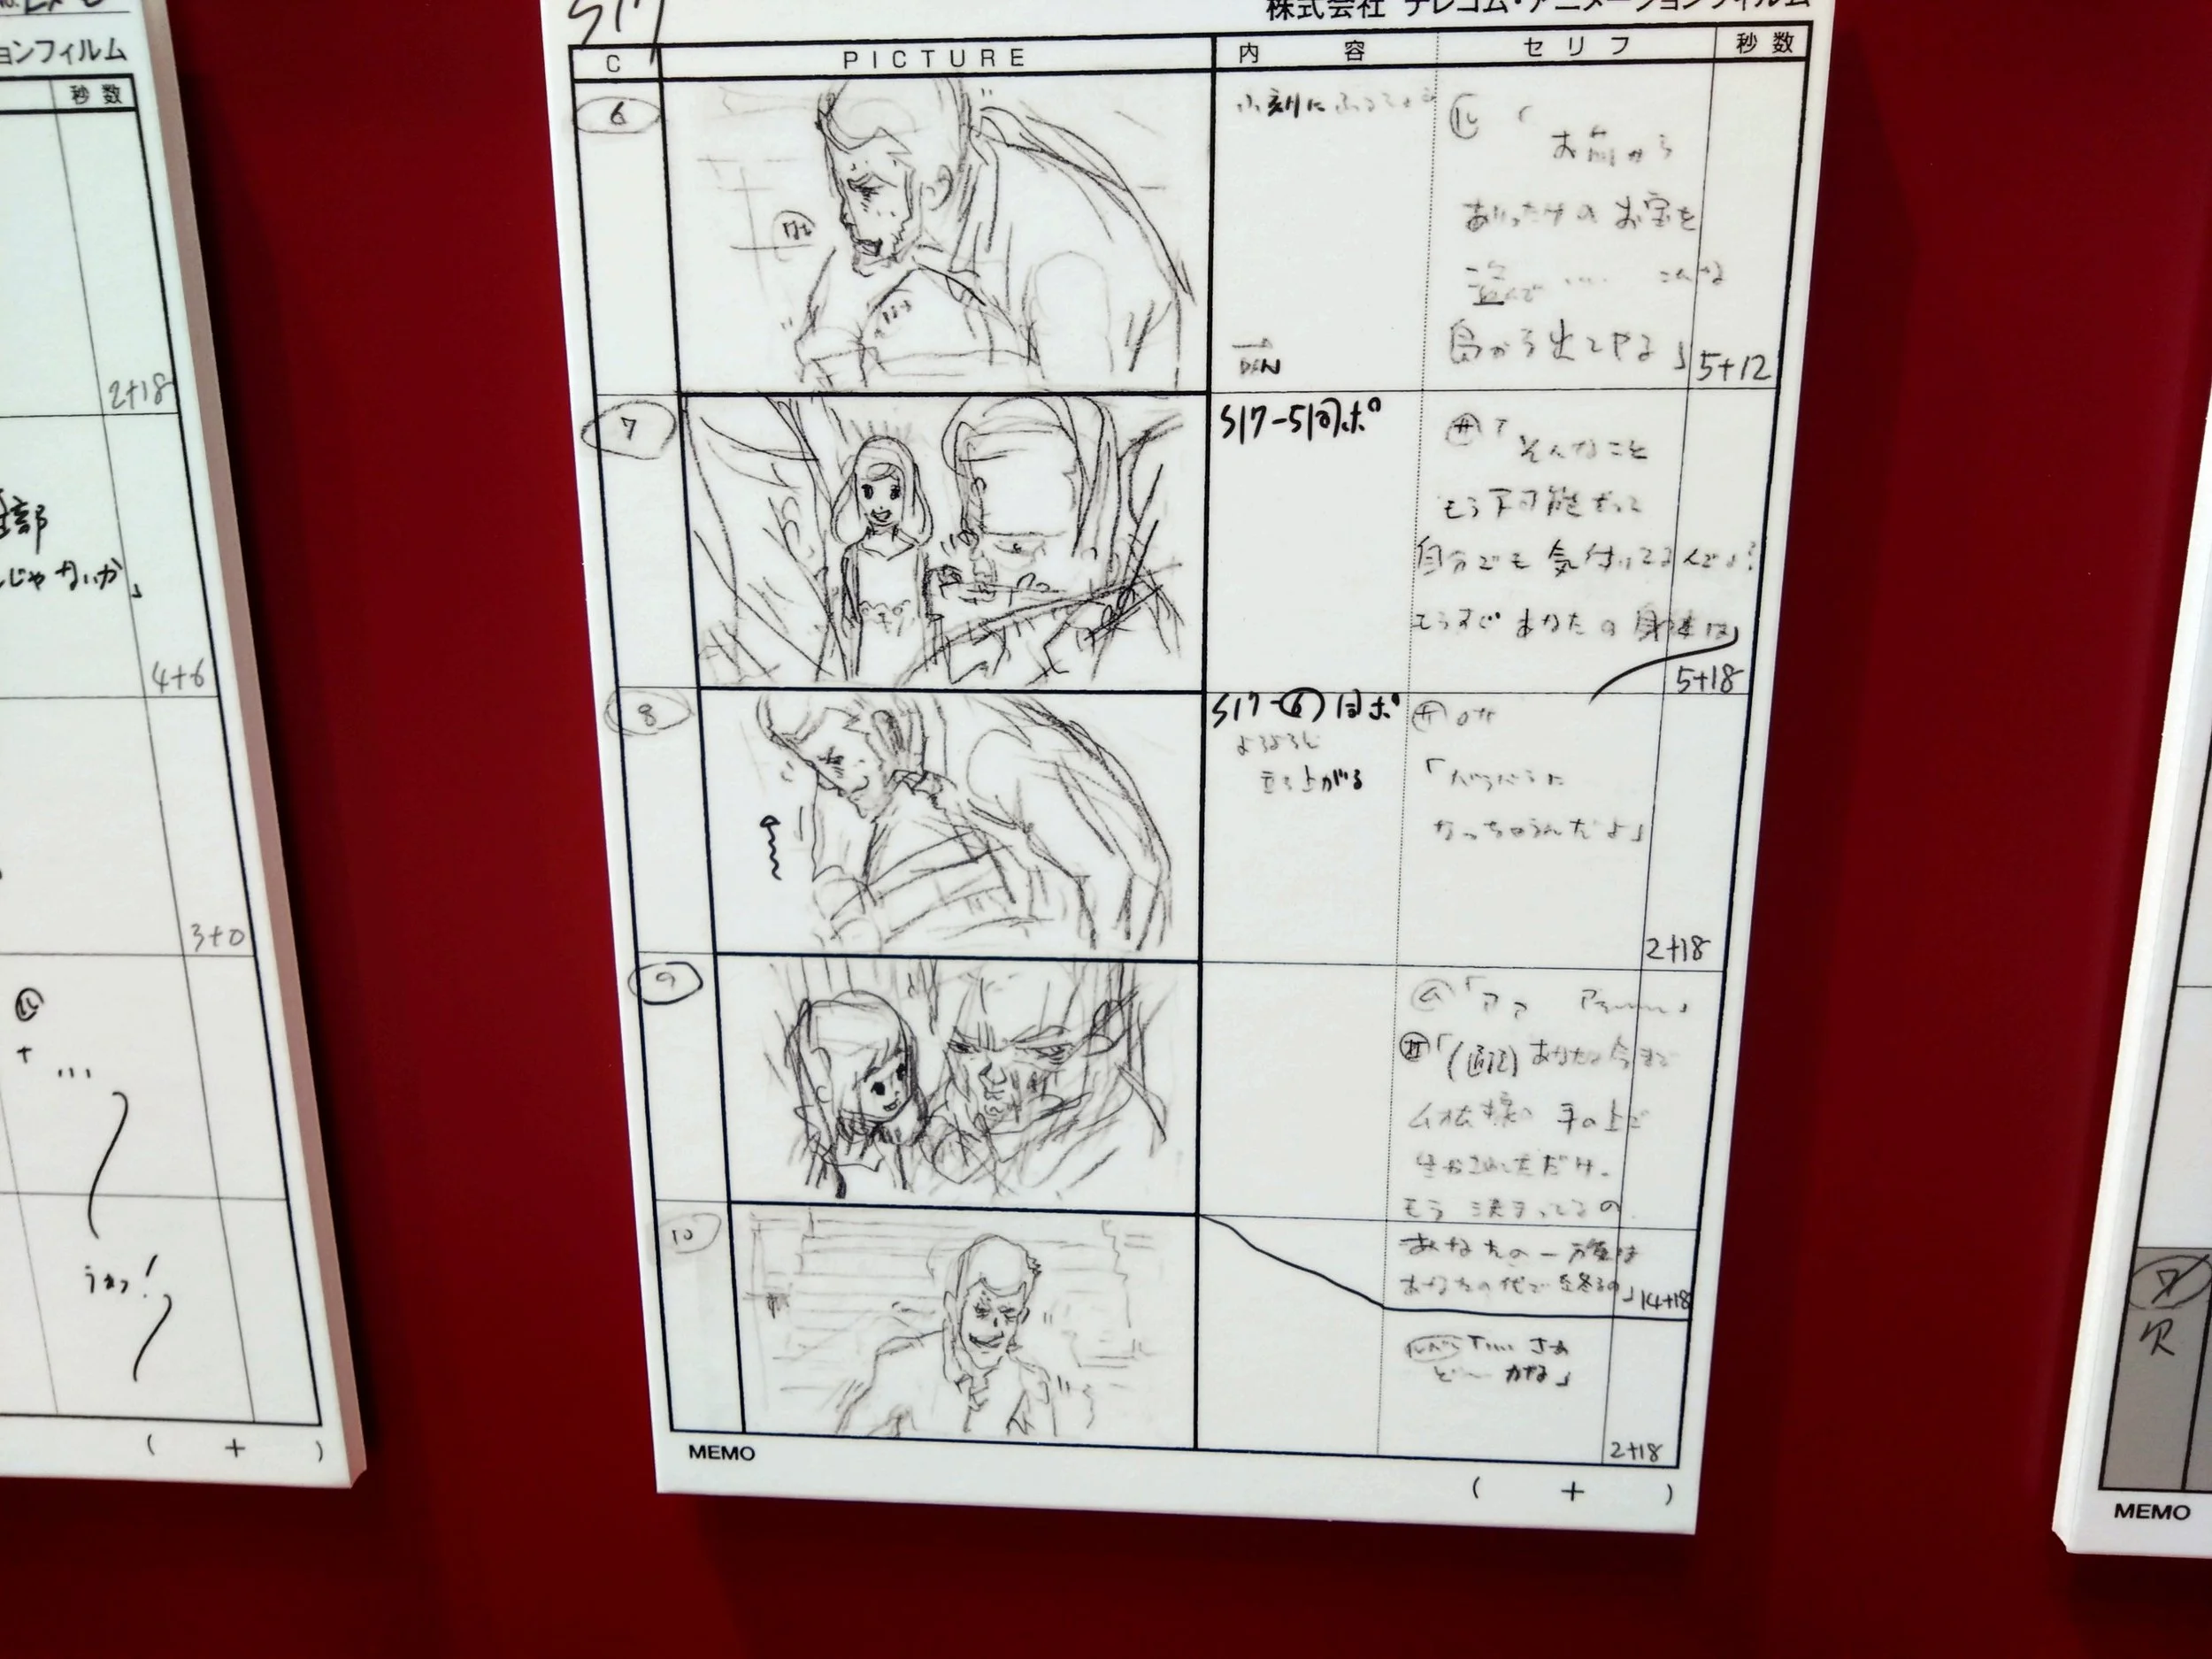 ョンフィルム
秒数
2+18
じゃないか」
4+6
3+0
+ …
うわっ!
( + )
S17
株式会社 テレコム・アニメーションフィルム
C PICTURE 内容 セリフ 秒数
6
ル「
お前から
ありったけのお宝を
盗んで…… こんな
島から出てやる」
5+12
7
S17-5同ポ
「そんなこと
もう不可能だって
自分でも気付いてるんでしょ?
もうすぐあなたの身体は
5+18
8
S17-⑥同ポ
よろよろと
立ち上がる
「ばらばらに
なっちゃうんだよ」
2+18
9
ム「アァ
あなたは今まで
ム様の手の上で
生かされただけ。
もう決まってるの。
あなたの一族は
あなたの代で終るの」
14+18
10
ルパン「…… さぁ
ど〜かな」
2+18
MEMO
( + )
7
欠
MEMO